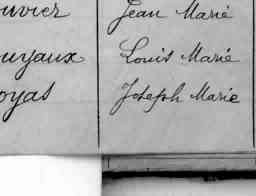 ouvier Jean Marié
uyaux Louis Marié
oyas Joseph Marie